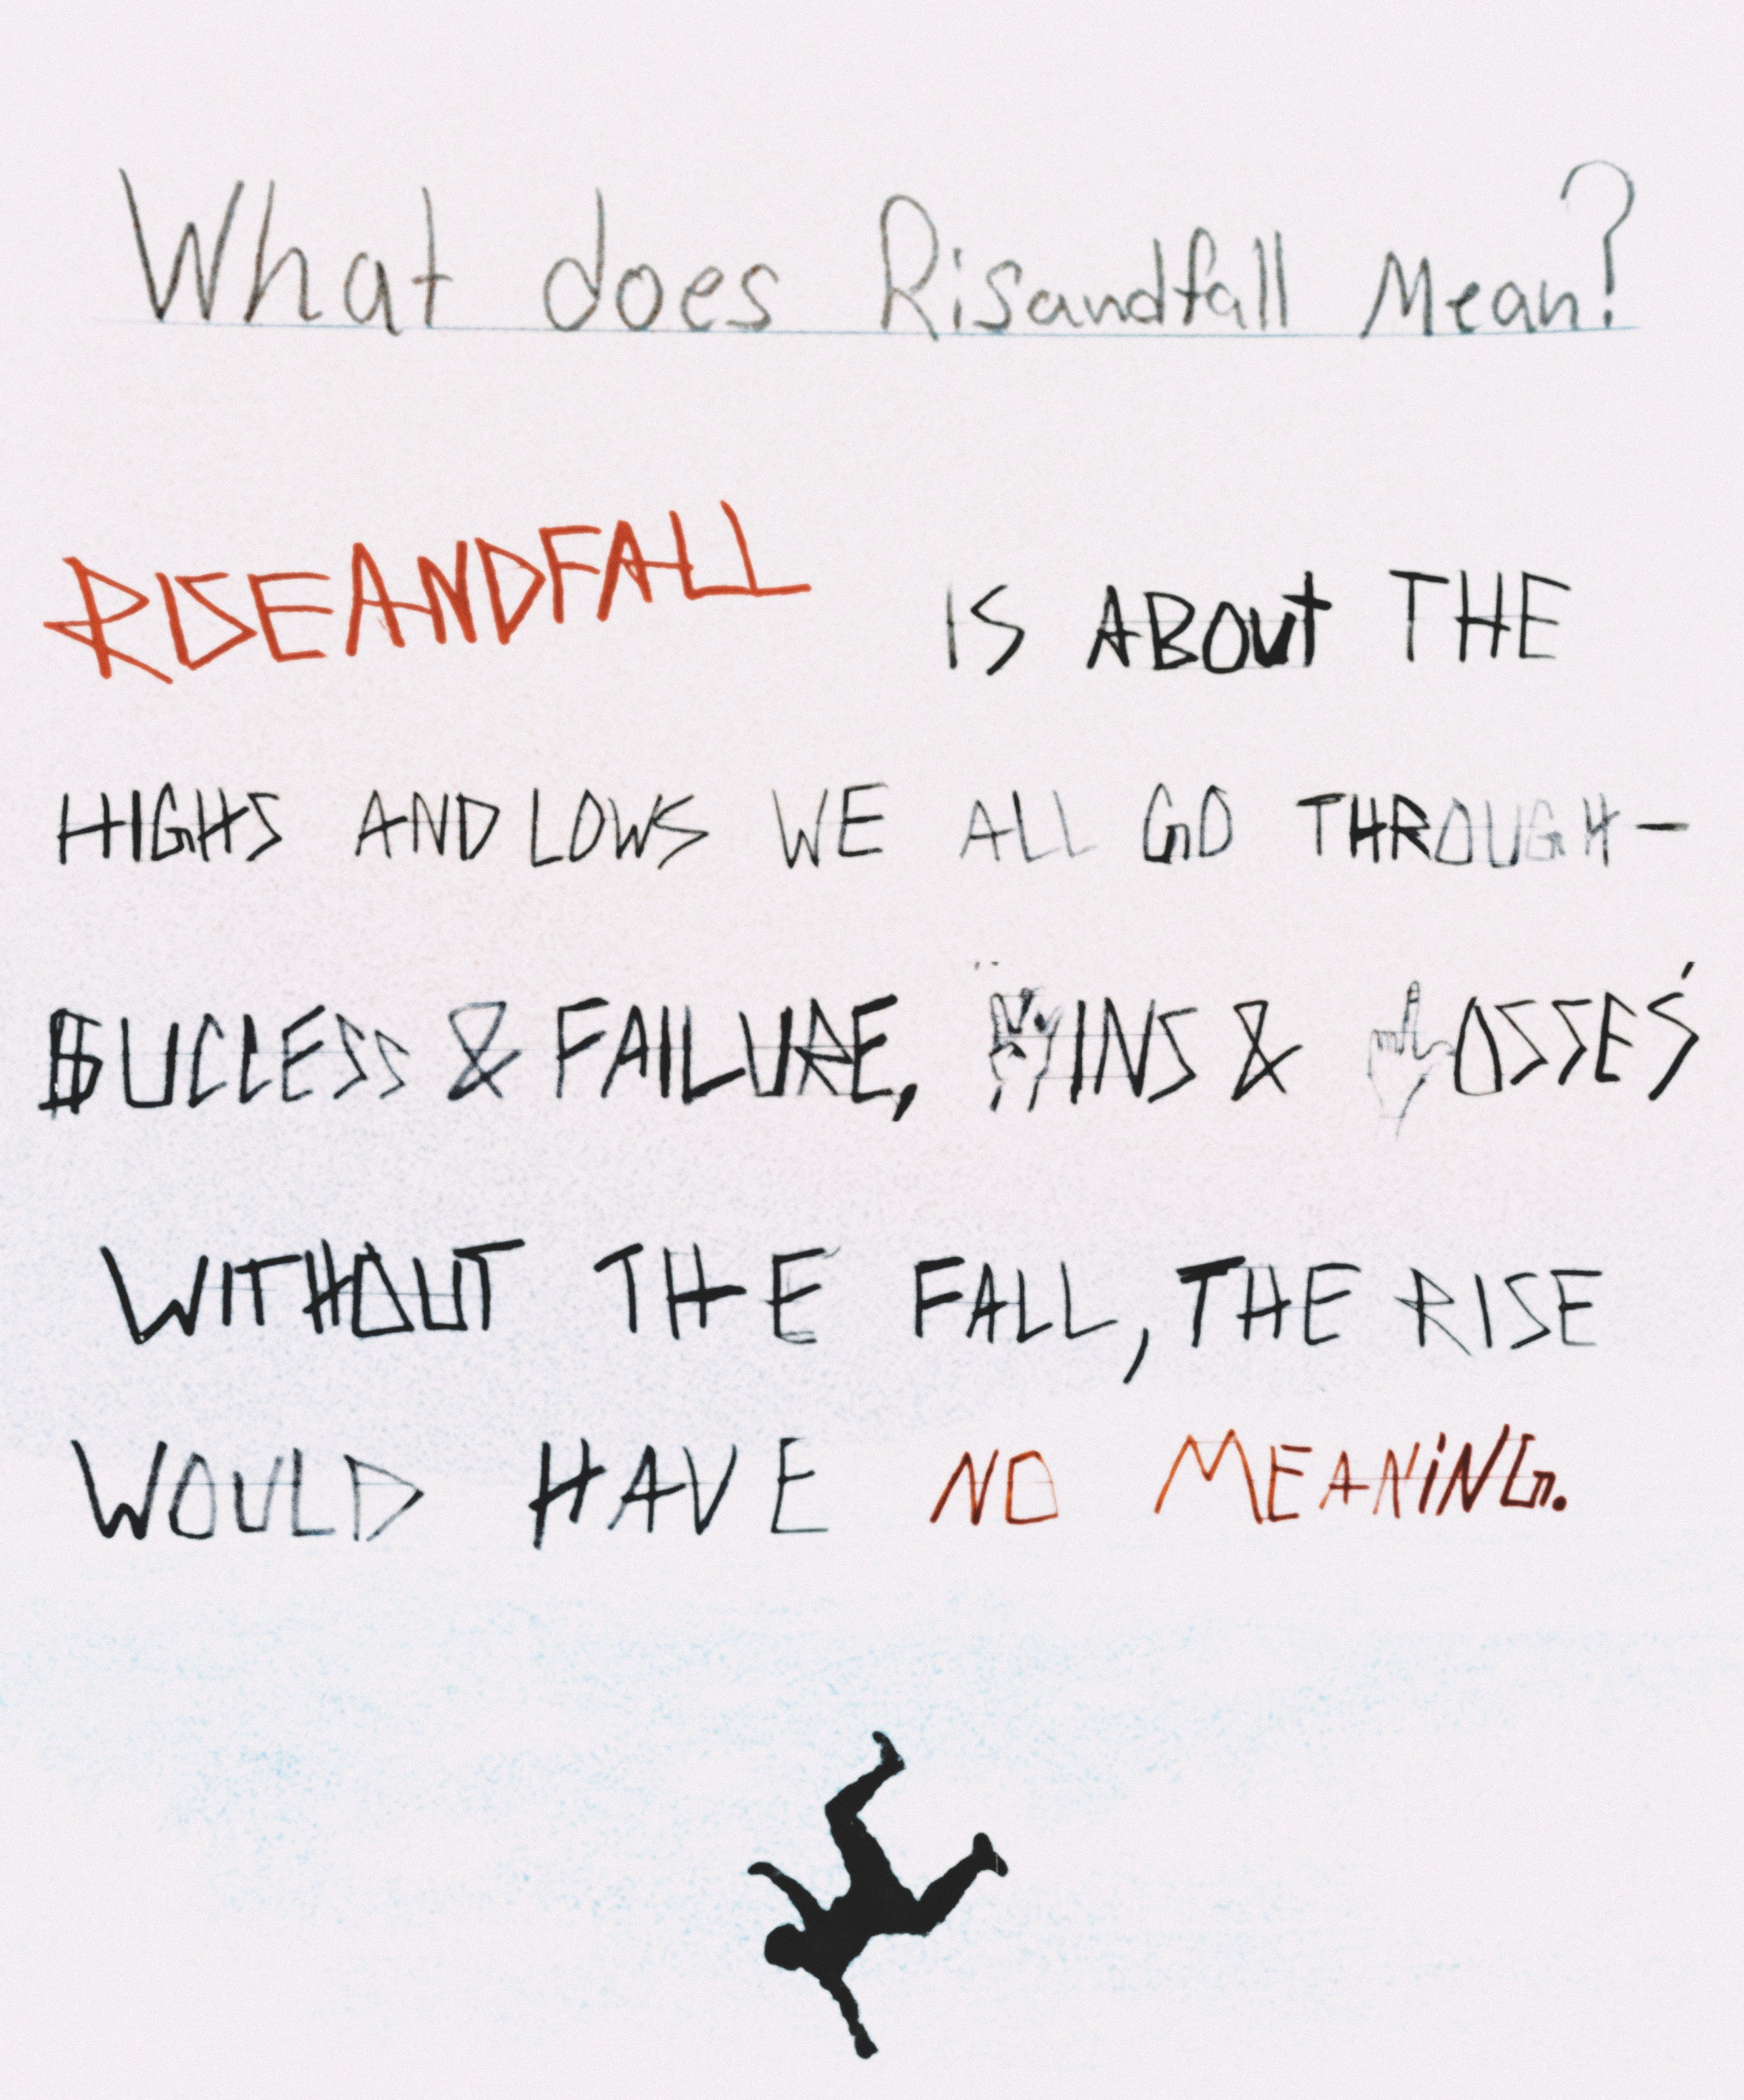 What does Risandfall Mean?
RISEANDFALL IS ABOUT THE
HIGHS AND LOWS WE ALL GO THROUGH-
$UCCESS & FAILURE, WINS & LOSSES
WITHOUT THE FALL, THE RISE
WOULD HAVE NO MEANING.